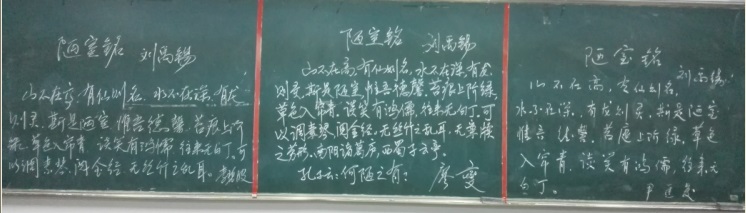 陋室铭 刘禹锡
山不在高,有仙则名,水不在深,有龙
则灵,斯是陋室,惟吾德馨,苔痕上阶
绿,草色入帘青,谈笑有鸿儒,往来无白丁,可
以调素琴,阅金经,无丝竹之乱耳。
陋室铭 刘禹锡
山不在高,有仙则名,水不在深,有龙
则灵,斯是陋室,惟吾德馨,苔痕上阶绿,
草色入帘青,谈笑有鸿儒,往来无白丁,可
以调素琴,阅金经,无丝竹之乱耳,无案牍
之劳形,南阳诸葛庐,西蜀子云亭。
孔子云:何陋之有? 廖雯
陋室铭
刘禹锡
山不在高,有仙则名,
水不在深,有龙则灵,斯是陋室
惟吾德馨,苔痕上阶绿,草色
入帘青,谈笑有鸿儒,往来无
白丁。